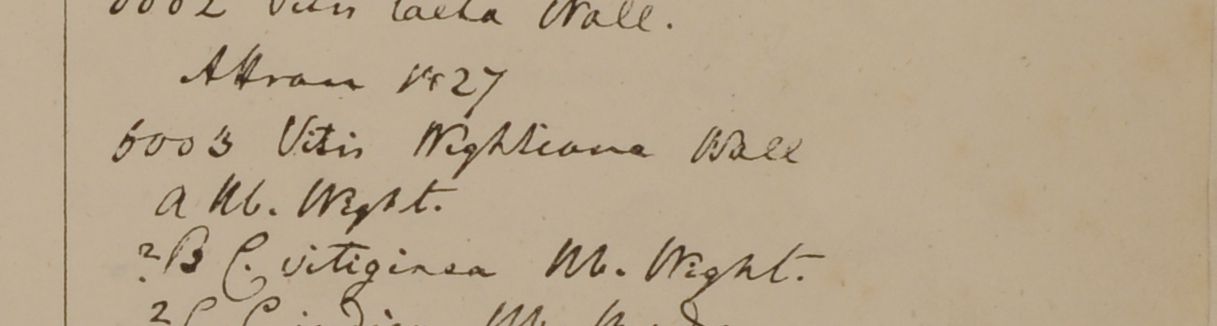 6002 Vitis laeta Wall.
Attran 1827
6003 Vitis Wightiana Wall
a Hb. Wight.
? B C. vitiginea Hb. Wight.
? C C. indica Hb.